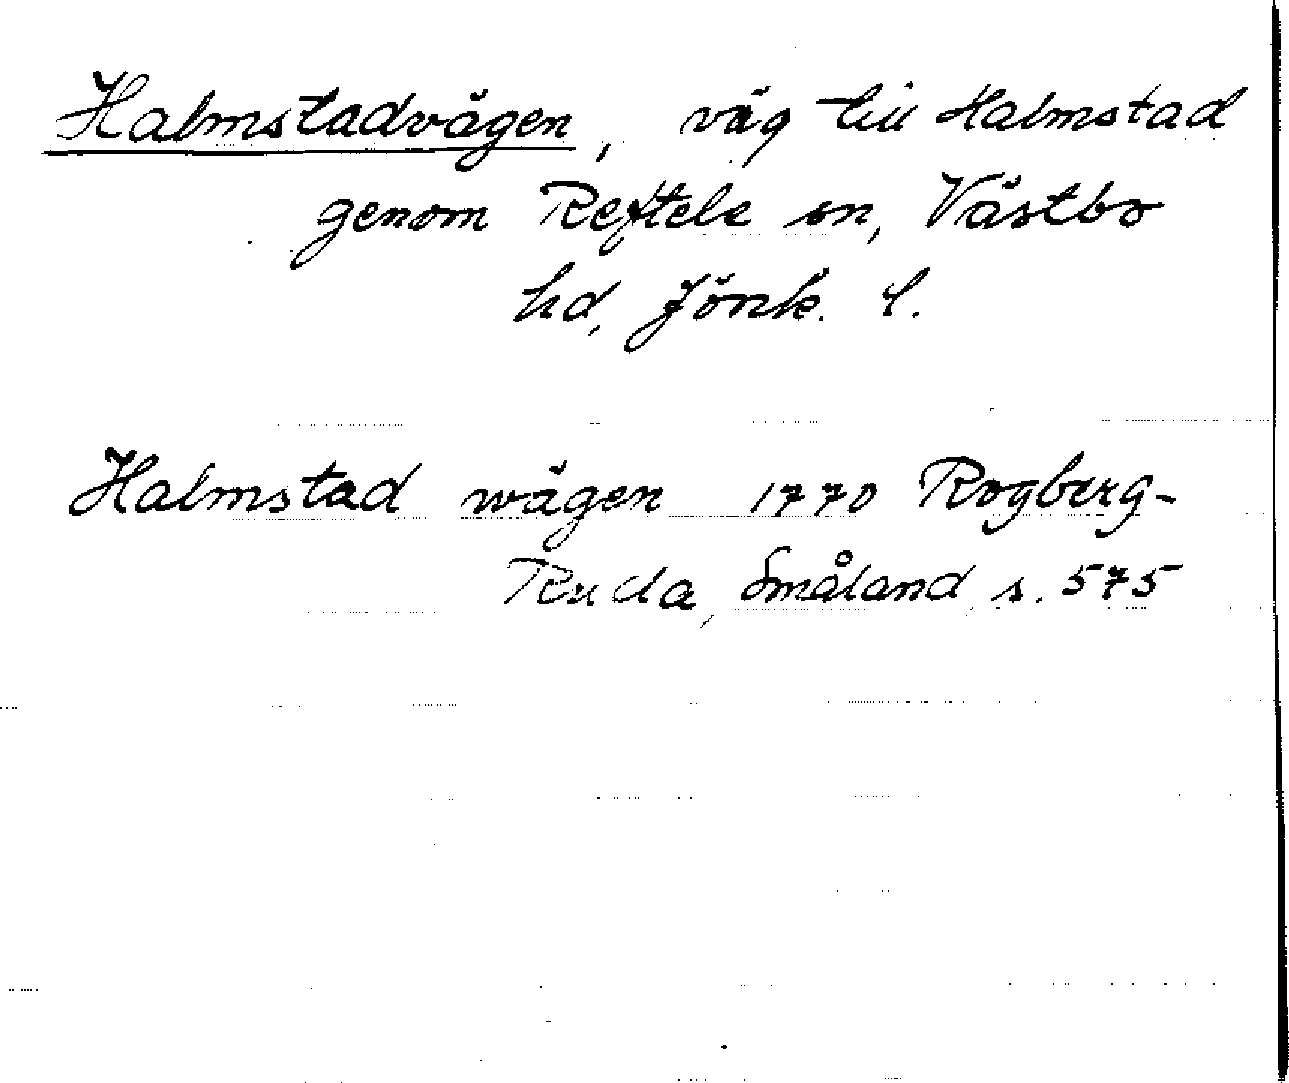 Halmstadvägen, väg till Halmstad
genom Reftele sn, Västbo
hd, Jönk. l.
Halmstad wägen 1770 Rogberg-
Ruda, Småland s. 575